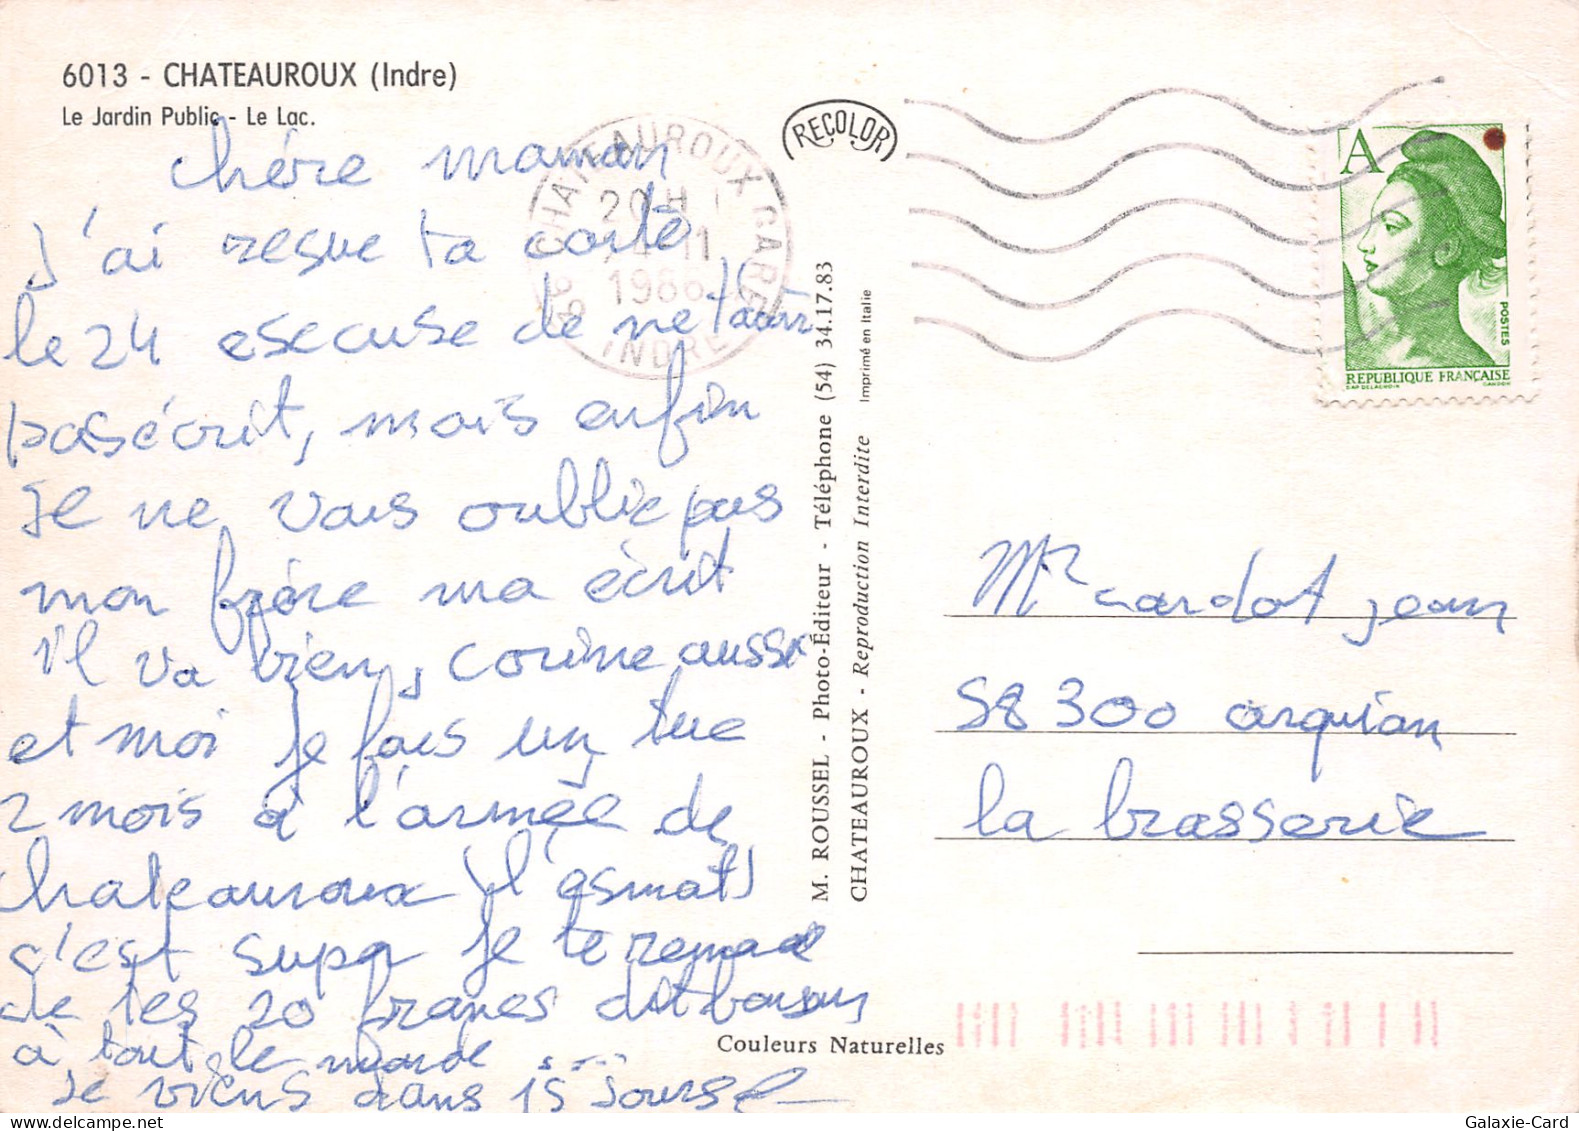 6013 - CHATEAUROUX (Indre)
Le Jardin Public - Le Lac.
chére maman
J'ai resue ta carte
le 24 esecuse de ne t'avoir
pas écrit, mais enfin
Je ne vous oublie pas
mon frére ma écrit
i'l va bien, corine aussi
et moi je fais un tuc
2 mois a l'armée de
chateauroux
c'est super je te remae
de tes 20 francs dit bonsous
à tout le monde ...
Je viens dans 15 Jours
CHATEAUROUX GARE
20 H
11
1986
36 INDRE
RECOLOR
M. ROUSSEL - Photo-Éditeur - Téléphone (54) 34.17.83
CHATEAUROUX - Reproduction Interdite Imprimé en Italie
Couleurs Naturelles
A
POSTES
REPUBLIQUE FRANÇAISE
D'AP DELACROIX GANDON
Mr cardot jean
58300 arquian
la brasserie
Galaxie-Card